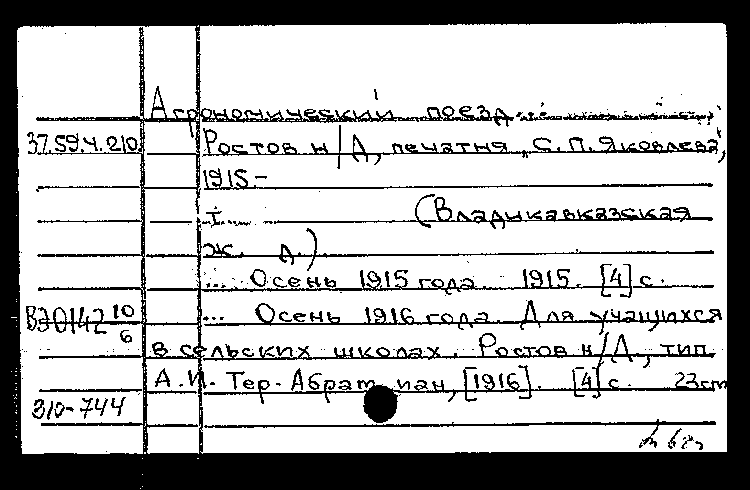 Агрономический поезд
37.59.4.210 Ростов н/Д, печатня „С.П. Яковлева",
1915.-
I. (Владикавказская
ж. д.)
... Осень 1915 года. 1915. [4] с.
ВЭ0142 10/6 ... Осень 1916 года. Для учащихся
в сельских школах. Ростов н/Д., тип.
А.И. Тер-Абрамиан, [1916]. [4] с. 23cm
310-744